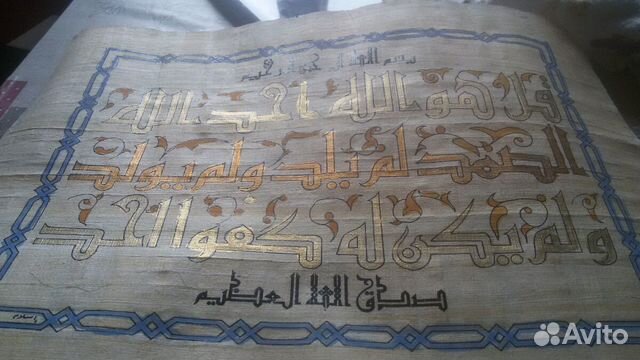 بسم الله الرحمن الرحيم
قل هو الله احد الله
الصمد لم يلد و لم يولد
و لم يكن له كفوا احد
صدق الله العظيم
Avito